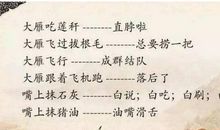 大雁吃莲秆--------直脖啦
大雁飞过拔根毛--------总要捞一把
大雁飞行--------成群结队
大雁跟着飞机跑--------落后了
嘴上抹石灰--------白说；白吃；白刷；
嘴上抹猪油--------油嘴滑舌